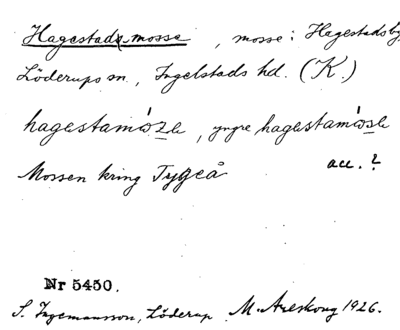 Hagestads mosse, mosse: Hagestadsby
Löderups sn., Ingelstads hd. (K.)
hagestamósle, yngre hagestamósle
acc. ?
Mossen kring Tygeå
Nr 5450.
S. Ingemansson, Löderup M. Areskoug 1926.